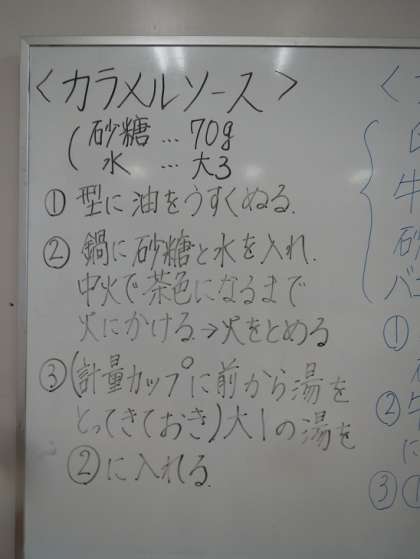 <カラメルソース>
(砂糖…70g
水 …大3
① 型に油をうすくぬる.
② 鍋に砂糖と水を入れ.
中火で茶色になるまで
火にかける.→火をとめる
③(計量カップに前から湯を
とってきておき)大1の湯を
②に入れる.
<
牛
砂
バ
①
②
に
③①